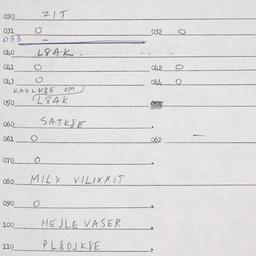 030 ZIT
031 O 032 O
033 -
040 L8AK
041 O 042 O
043 O 044 O
KAXLK8E CM
050 (L8AK
060 SATK8E
061 O 062 -
070 O
080 MILX VILIXHIT
090 O
100 HEJLE VASER
110 PL8OJK8E